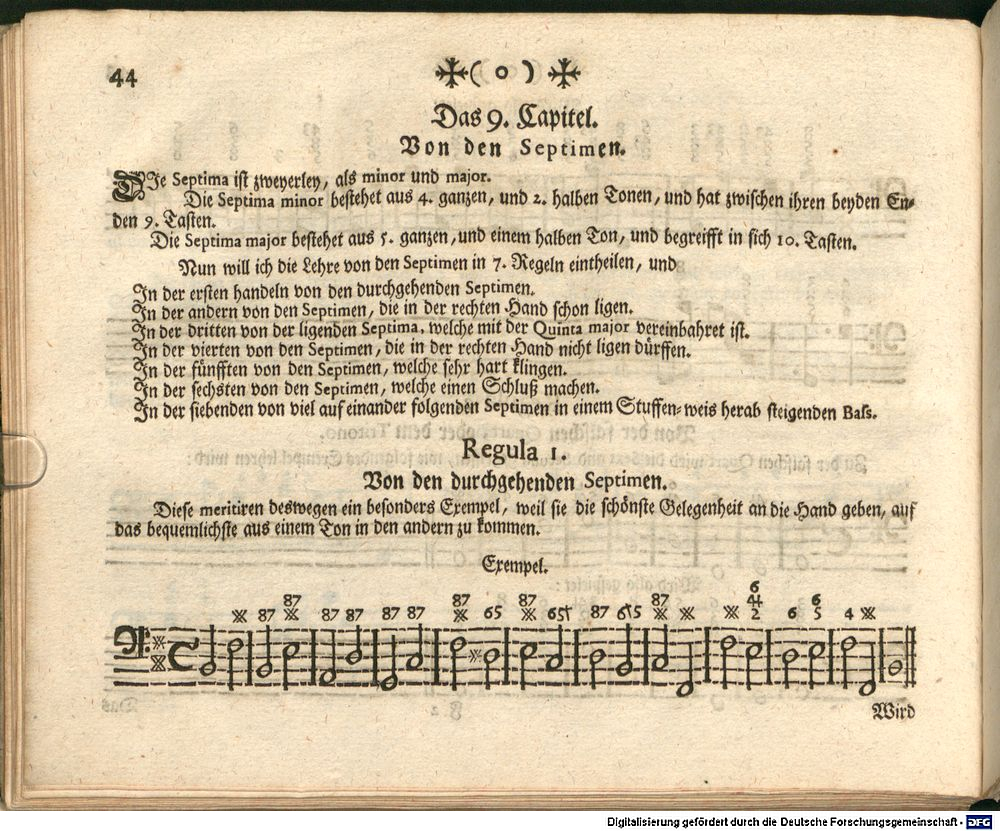 44
( o )
Das 9. Capitel.
Von den Septimen.
DIe Septima ist zweyerley, als minor und major.
Die Septima minor bestehet aus 4. ganzen, und 2. halben Tonen, und hat zwischen ihren beyden En-
den 9. Tasten.
Die Septima major bestehet aus 5. ganzen, und einem halben Ton, und begreifft in sich 10. Tasten.
Nun will ich die Lehre von den Septimen in 7. Regeln eintheilen, und
In der ersten handeln von den durchgehenden Septimen.
In der andern von den Septimen, die in der rechten Hand schon ligen.
In der dritten von der ligenden Septima, welche mit der Quinta major vereinbahret ist.
In der vierten von den Septimen, die in der rechten Hand nicht ligen dürffen.
In der fünfften von den Septimen, welche sehr hart klingen.
In der sechsten von den Septimen, welche einen Schluß machen.
In der siebenden von viel auf einander folgenden Septimen in einem Stuffen-weis herab steigenden Bass.
Regula 1.
Von den durchgehenden Septimen.
Diese meritiren deswegen ein besonders Exempel, weil sie die schönste Gelegenheit an die Hand geben, auf
das bequemlichste aus einem Ton in den andern zu kommen.
Exempel.
87 87 87 87 6
※ 87 ※ 87 87 87 87 ※ 65 ※ 65† 87 6†5 ※ ※ ※ 44 2 6 6 5 4 ※
Wird
Digitalisierung gefördert durch die Deutsche Forschungsgemeinschaft - DFG